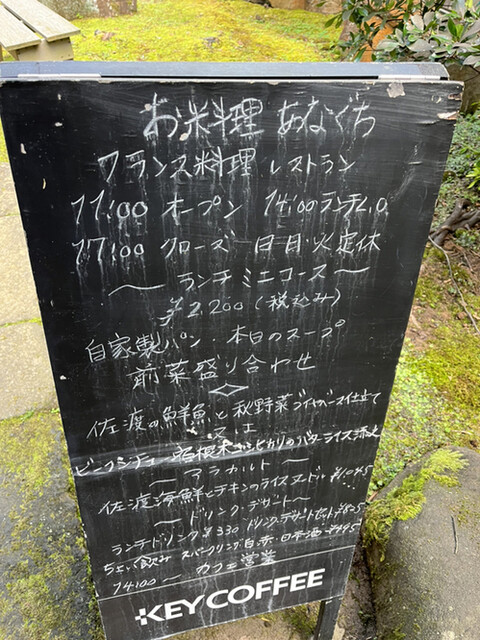 お米料理 あなぐち
フランス料理 レストラン
11:00 オープン 14:00 ランチL.O
17:00 クローズ 日月火定休
〜 ランチミニコース 〜
¥2,200 (税込み)
自家製パン・本日のスープ
前菜盛り合わせ
佐渡の鮮魚と秋野菜 ブイヤベース仕立て
又は
コシヒカリのバターライス添え
〜 アラカルト 〜
佐渡海鮮とチキンのライスヌードル ¥1045
〜 ドリンク・デザート 〜
ランチドリンク ¥330 ドリンク・デザートセット ¥825
ちょい飲み スパークリング 白 赤・日本酒 ¥495
14:00〜 カフェ営業
KEY COFFEE